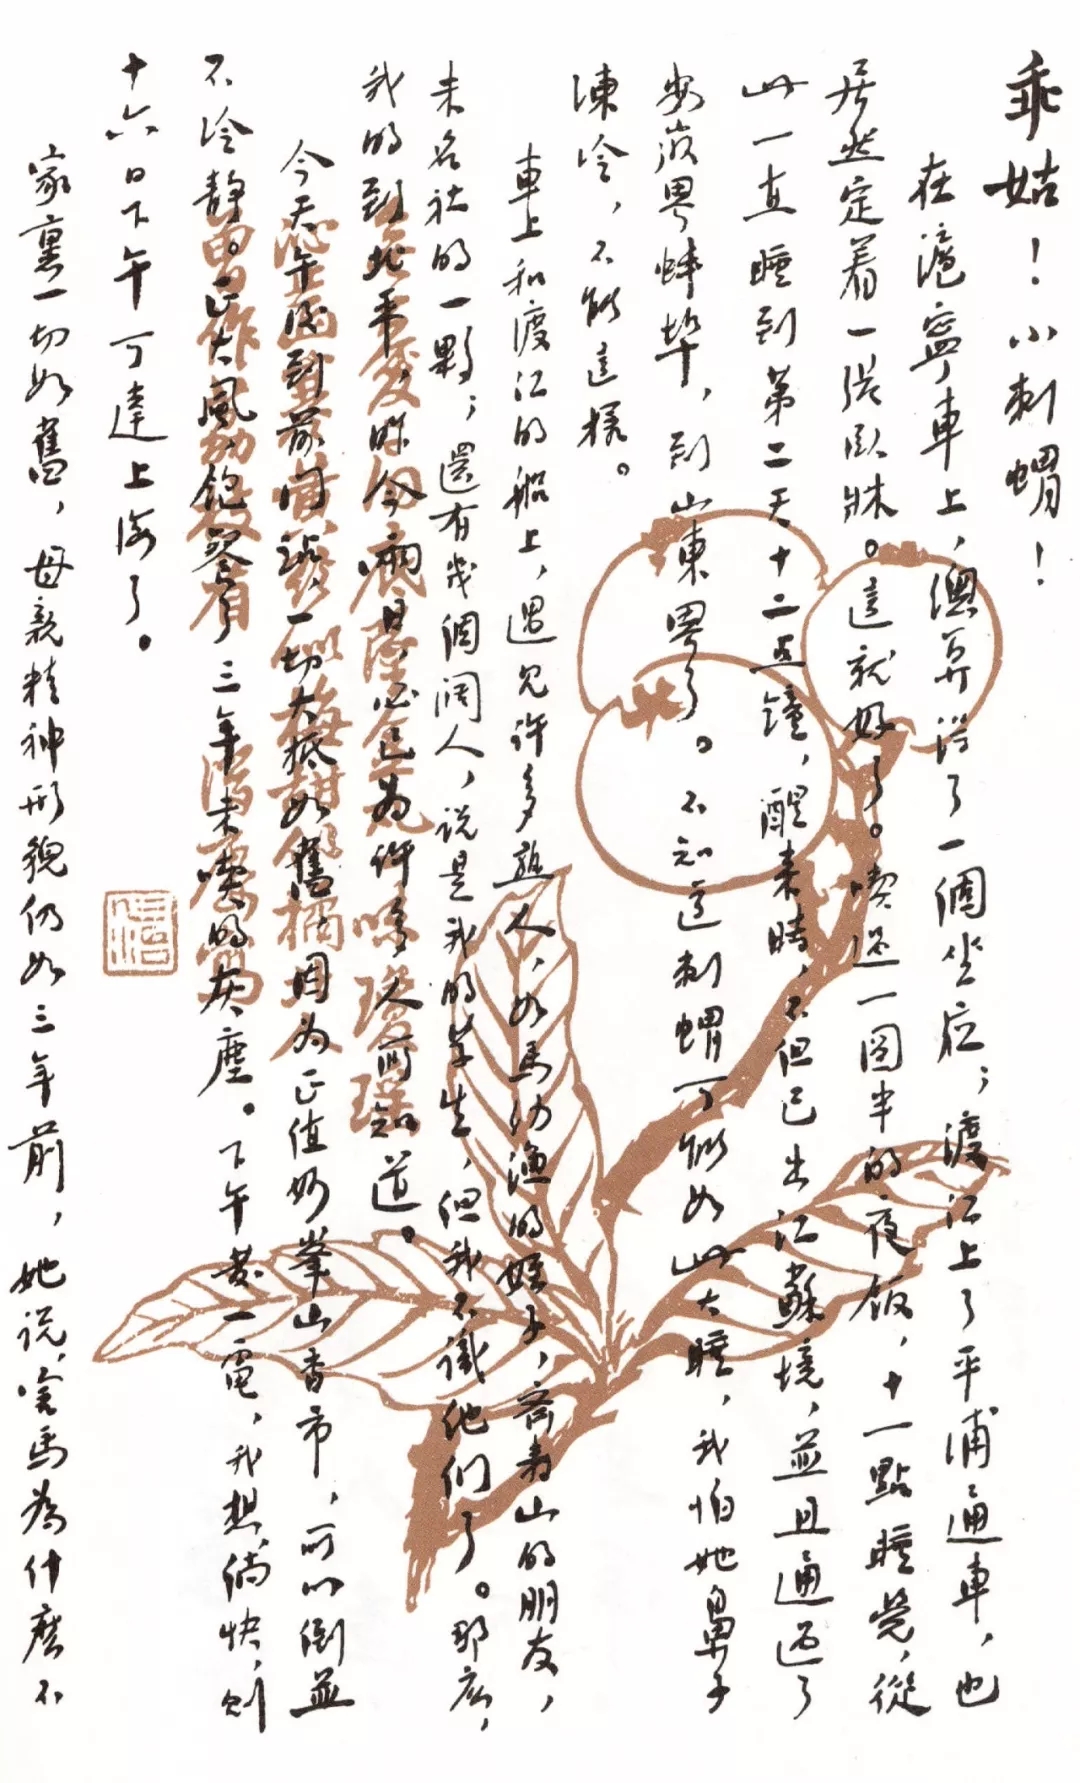 乖姑！小刺蝟！
在滬寧車上，總算得了一個坐位；渡江上了平浦通車，也
居然定着一張臥牀。這就好了。喫過一圓半的夜飯，十一點睡覺，從
此一直睡到第二天十二點鐘，醒來時，不但已出江蘇境，並且通過了
安徽界蚌埠，到山東界了。不知道刺蝟可能如此大睡，我怕她鼻子
凍冷，不能這樣。
車上和渡江的船上，遇見許多熟人，如馬幼漁的姪子，齊壽山的朋友，
未名社的一夥；還有幾個闊人，說是我的學生，但我不識他們了。那麽，
我的到北平，昨今兩日，必已為許多人所知道。
今天午後到前門站，一切大抵如舊，因為正值妙峯山香市，所以倒並
不冷靜。正大風，飽餐了三年未喫的灰塵。下午發一電，我想，倘快，則
十六日下午可達上海了。
家裏一切如舊，母親精神形貌仍如三年前，她說，害馬為什麽不